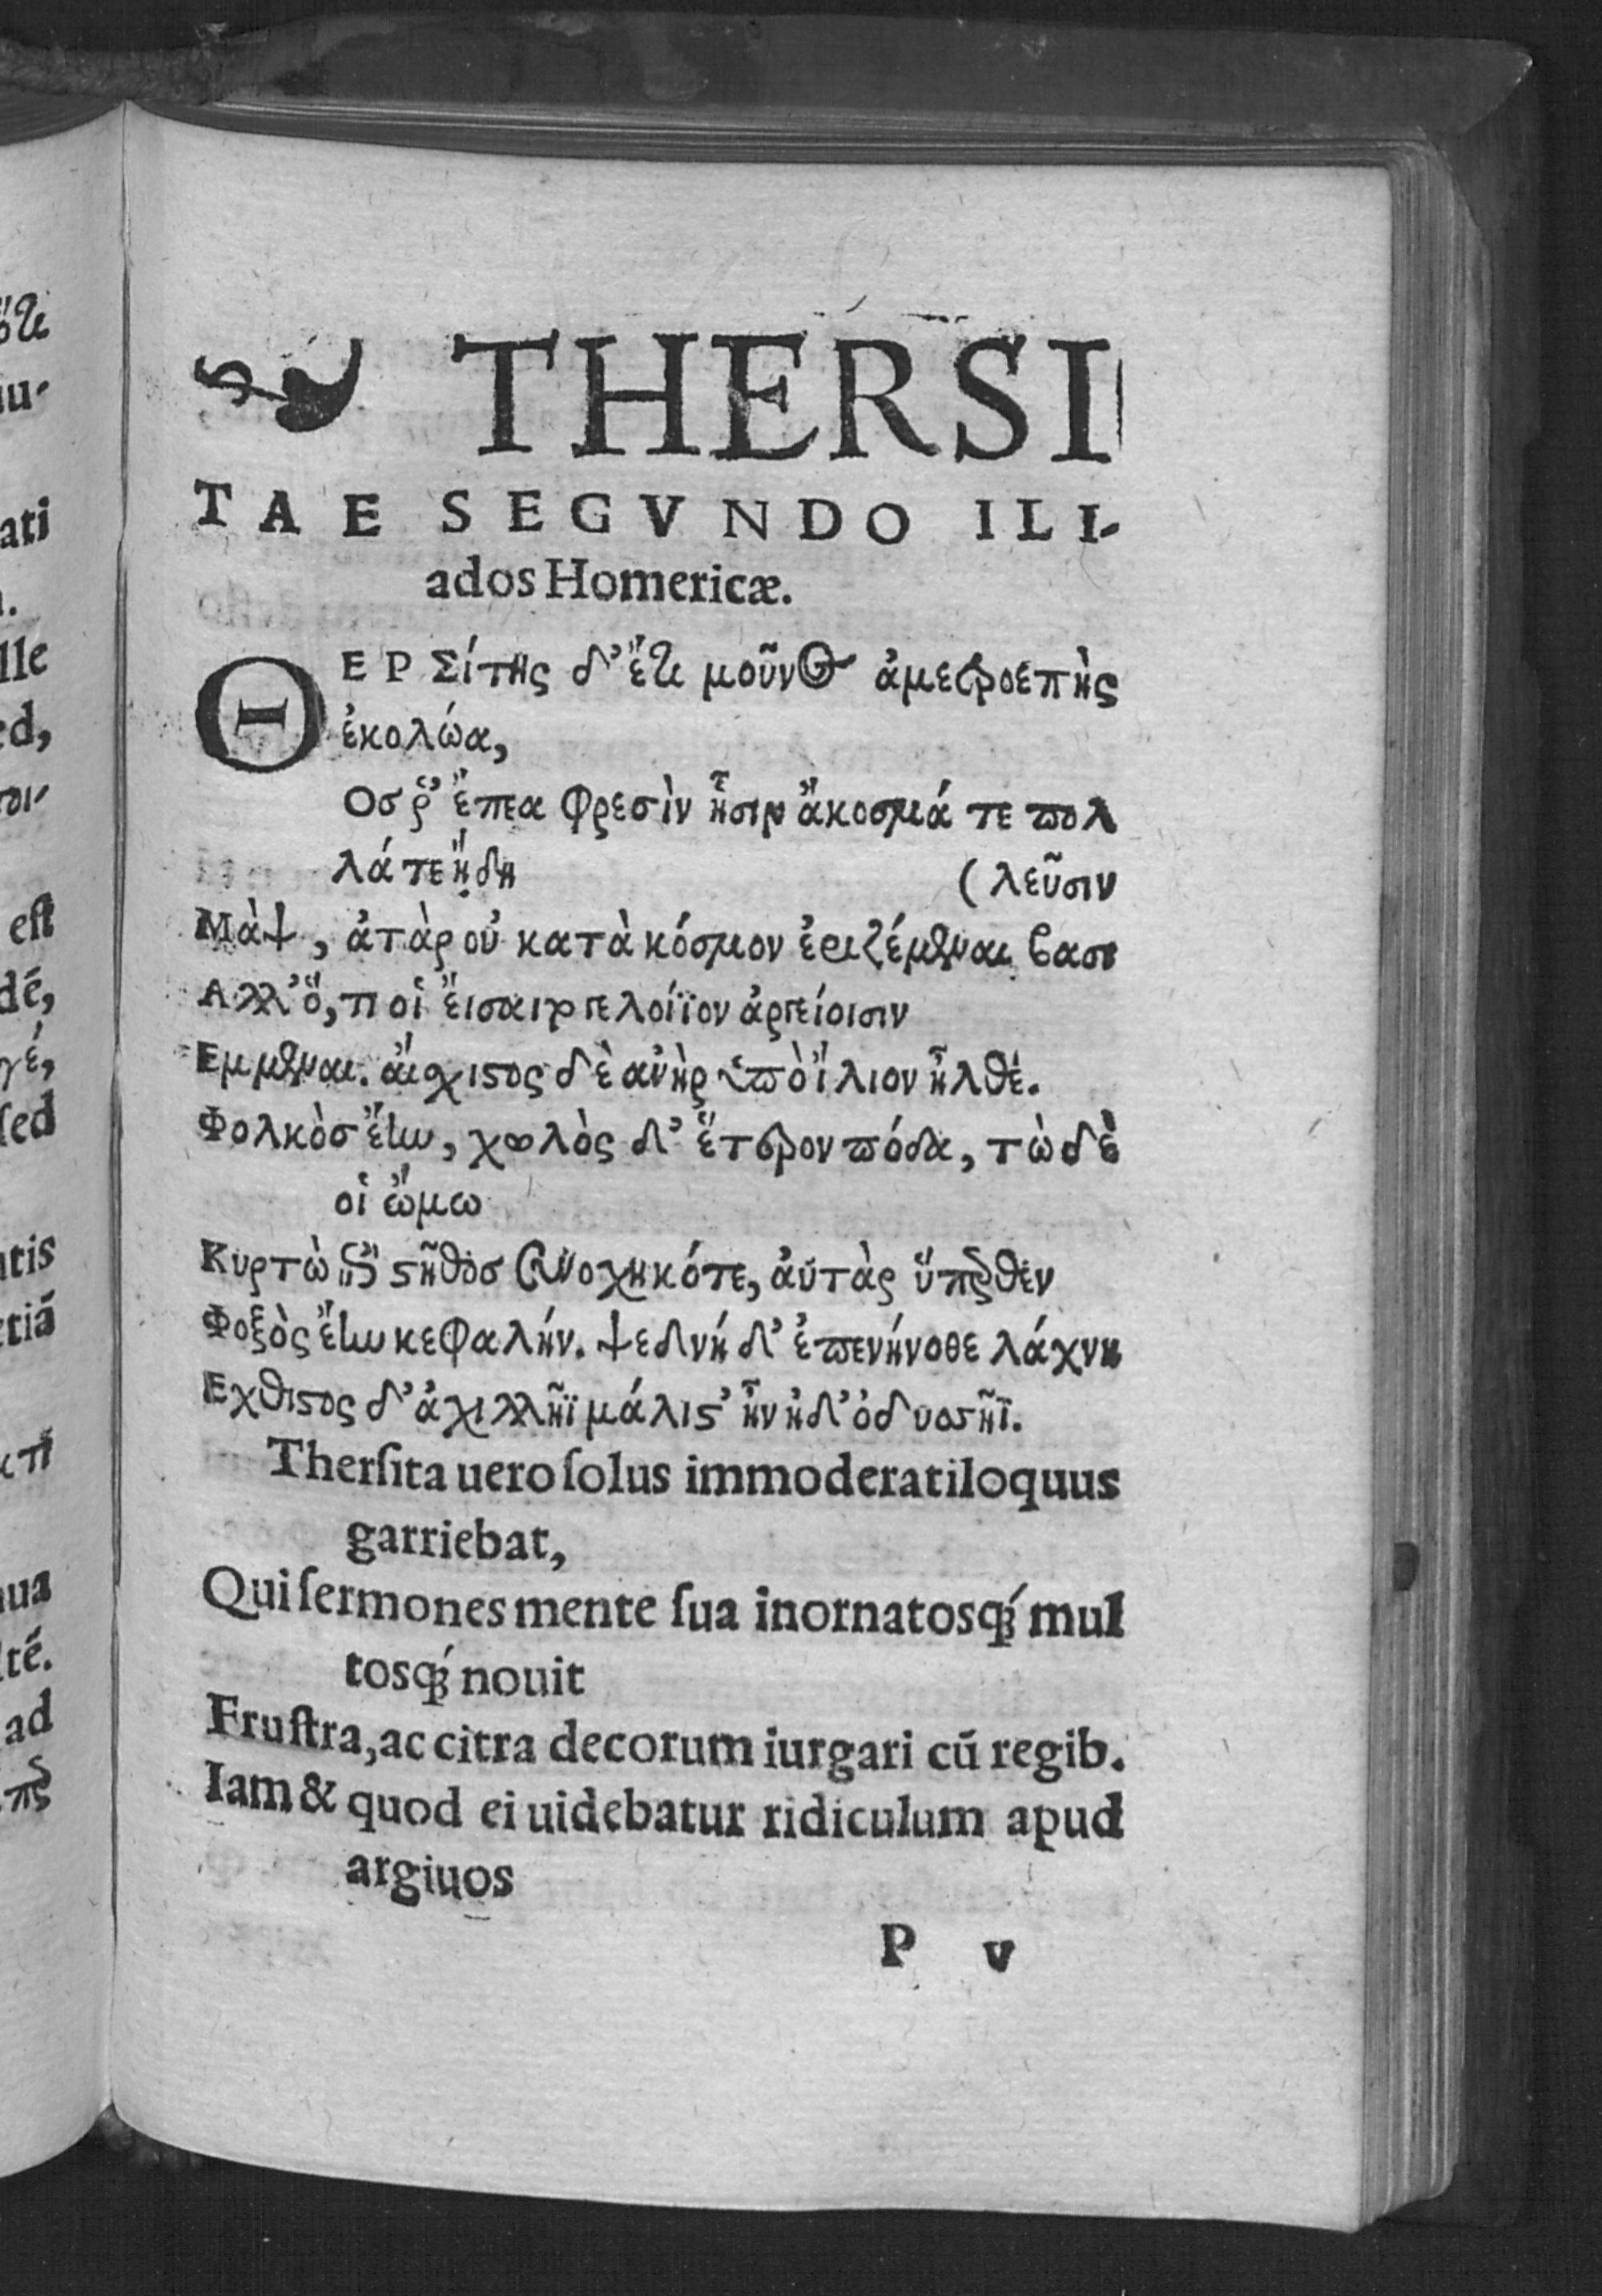 THERSI
TAE SEGVNDO ILI-
ados Homericæ.
ΘΕΡΣίτης δ' ἔτι μοῦνος ἀμετροεπὴς
ἐκολώα,
Οσ ῥ' ἔπεα φρεσὶν ᾗσιν ἄκοσμά τε πολ
λά τε ᾔδη
(λεῦσιν
Μὰψ, ἀτὰρ οὐ κατὰ κόσμον ἐριζέμεναι βασι
Αλλ' ὅ, τι οἱ ἔισαιτο γελοίϊον ἀργείοισιν
Εμμεναι. ἄιχιστος δὲ ἀνὴρ ὑπὸ ἴλιον ἦλθέ.
Φολκὸσ ἔην, χωλὸς δ' ἕτερον πόδα, τὼ δὲ
οἱ ὤμω
Κυρτὼ ἐπὶ στῆθοσ συνοχηκότε, ἀυτὰρ ὕπερθεν
Φοξὸς ἔην κεφαλήν. ψεδνή δ' ἐπενήνοθε λάχνη
Εχθιστος δ' ἀχιλλῆϊ μάλιστ' ἦν ἠδ' ὀδυσσῆϊ.
Therſita uero ſolus immoderatiloquus
garriebat,
Qui ſermones mente ſua inornatosq́ꝫ mul
tosq́ꝫ nouit
Fruſtra, ac citra decorum iurgari cū regib.
Iam & quod ei uidebatur ridiculum apud
argiuos
P v